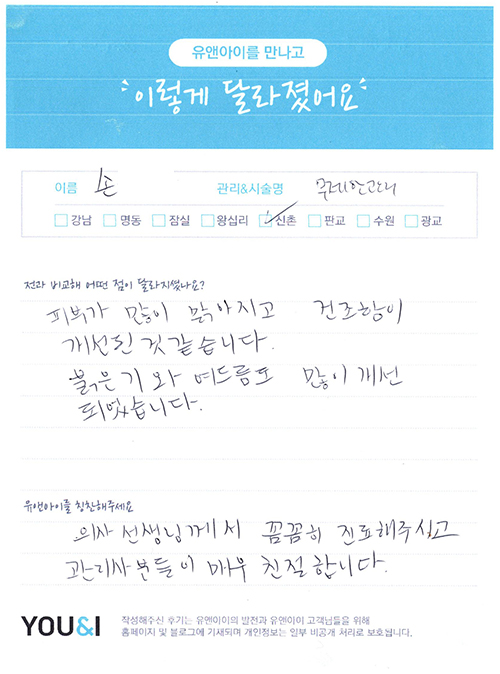 유앤아이를 만나고
이렇게 달라졌어요
이름 손 관리&시술명
강남 명동 잠실 왕십리 신촌 판교 수원 광교
전과 비교해 어떤 점이 달라지셨나요?
피부가 많이 맑아지고 건조함이
개선된 것 같습니다.
붉은기와 여드름도 많이 개선
되었습니다.
유앤아이를 칭찬해주세요
의사 선생님께서 꼼꼼히 진료해주시고
관리사분들이 매우 친절합니다.
YOU&I
작성해주신 후기는 유앤아이의 발전과 유앤아이 고객님들을 위해
홈페이지 및 블로그에 기재되며 개인정보는 일부 비공개 처리로 보호됩니다.